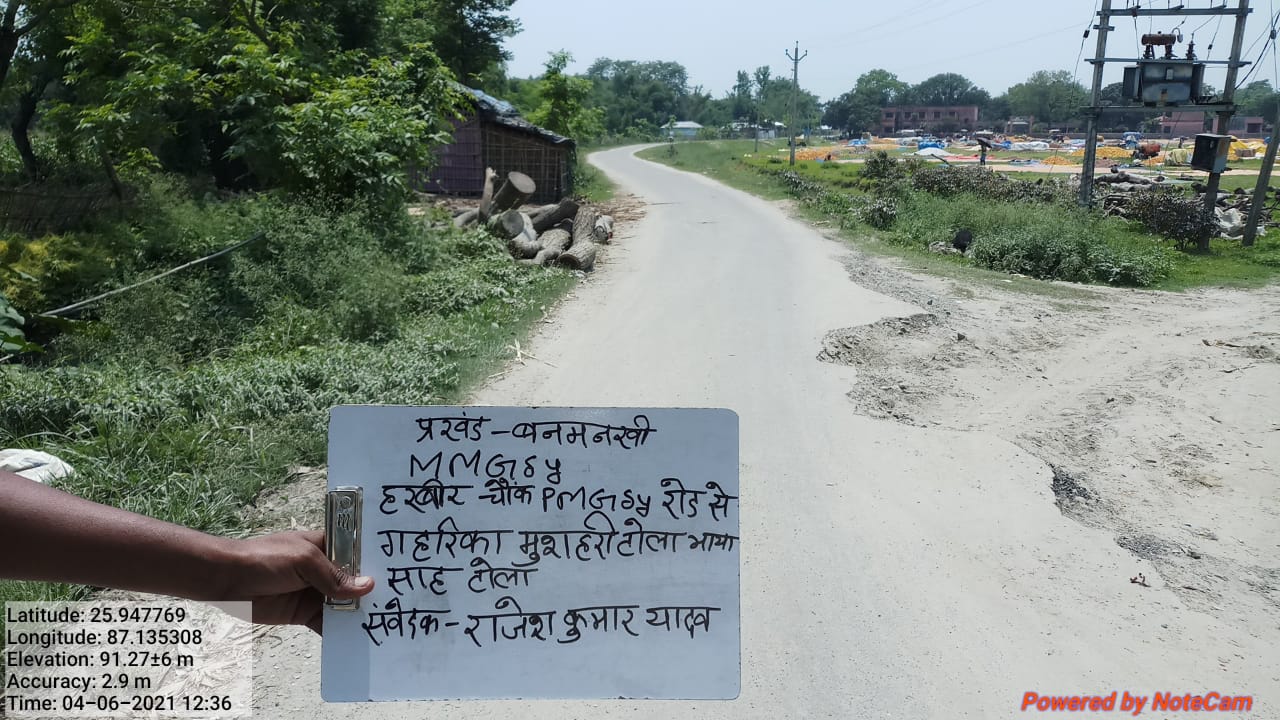 प्रखंड-बनमनखी
MMGSY
हरखीर-चौक PMGSY रोड से
गहरिका मुशहरी टोला भाया
साह टोला
संवेदक-राजेश कुमार यादव
Latitude: 25.947769
Longitude: 87.135308
Elevation: 91.27±6 m
Accuracy: 2.9 m
Time: 04-06-2021 12:36
Powered by NoteCam